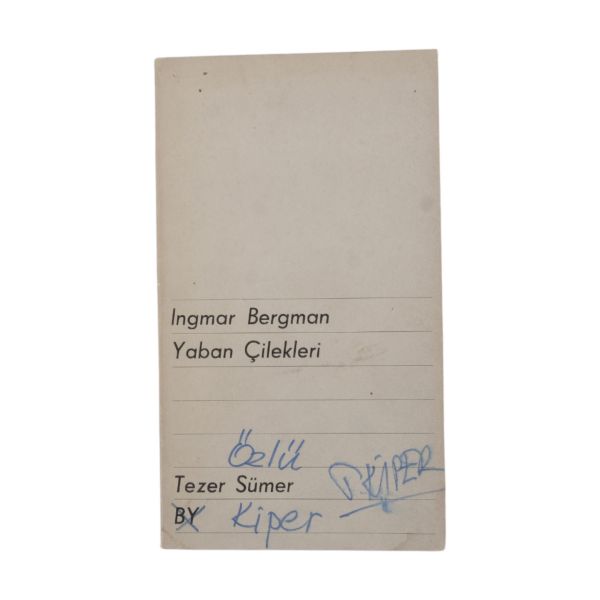 Ingmar Bergman
Yaban Çilekleri
Özlü
Tezer Sümer
KİPER
BY Kiper